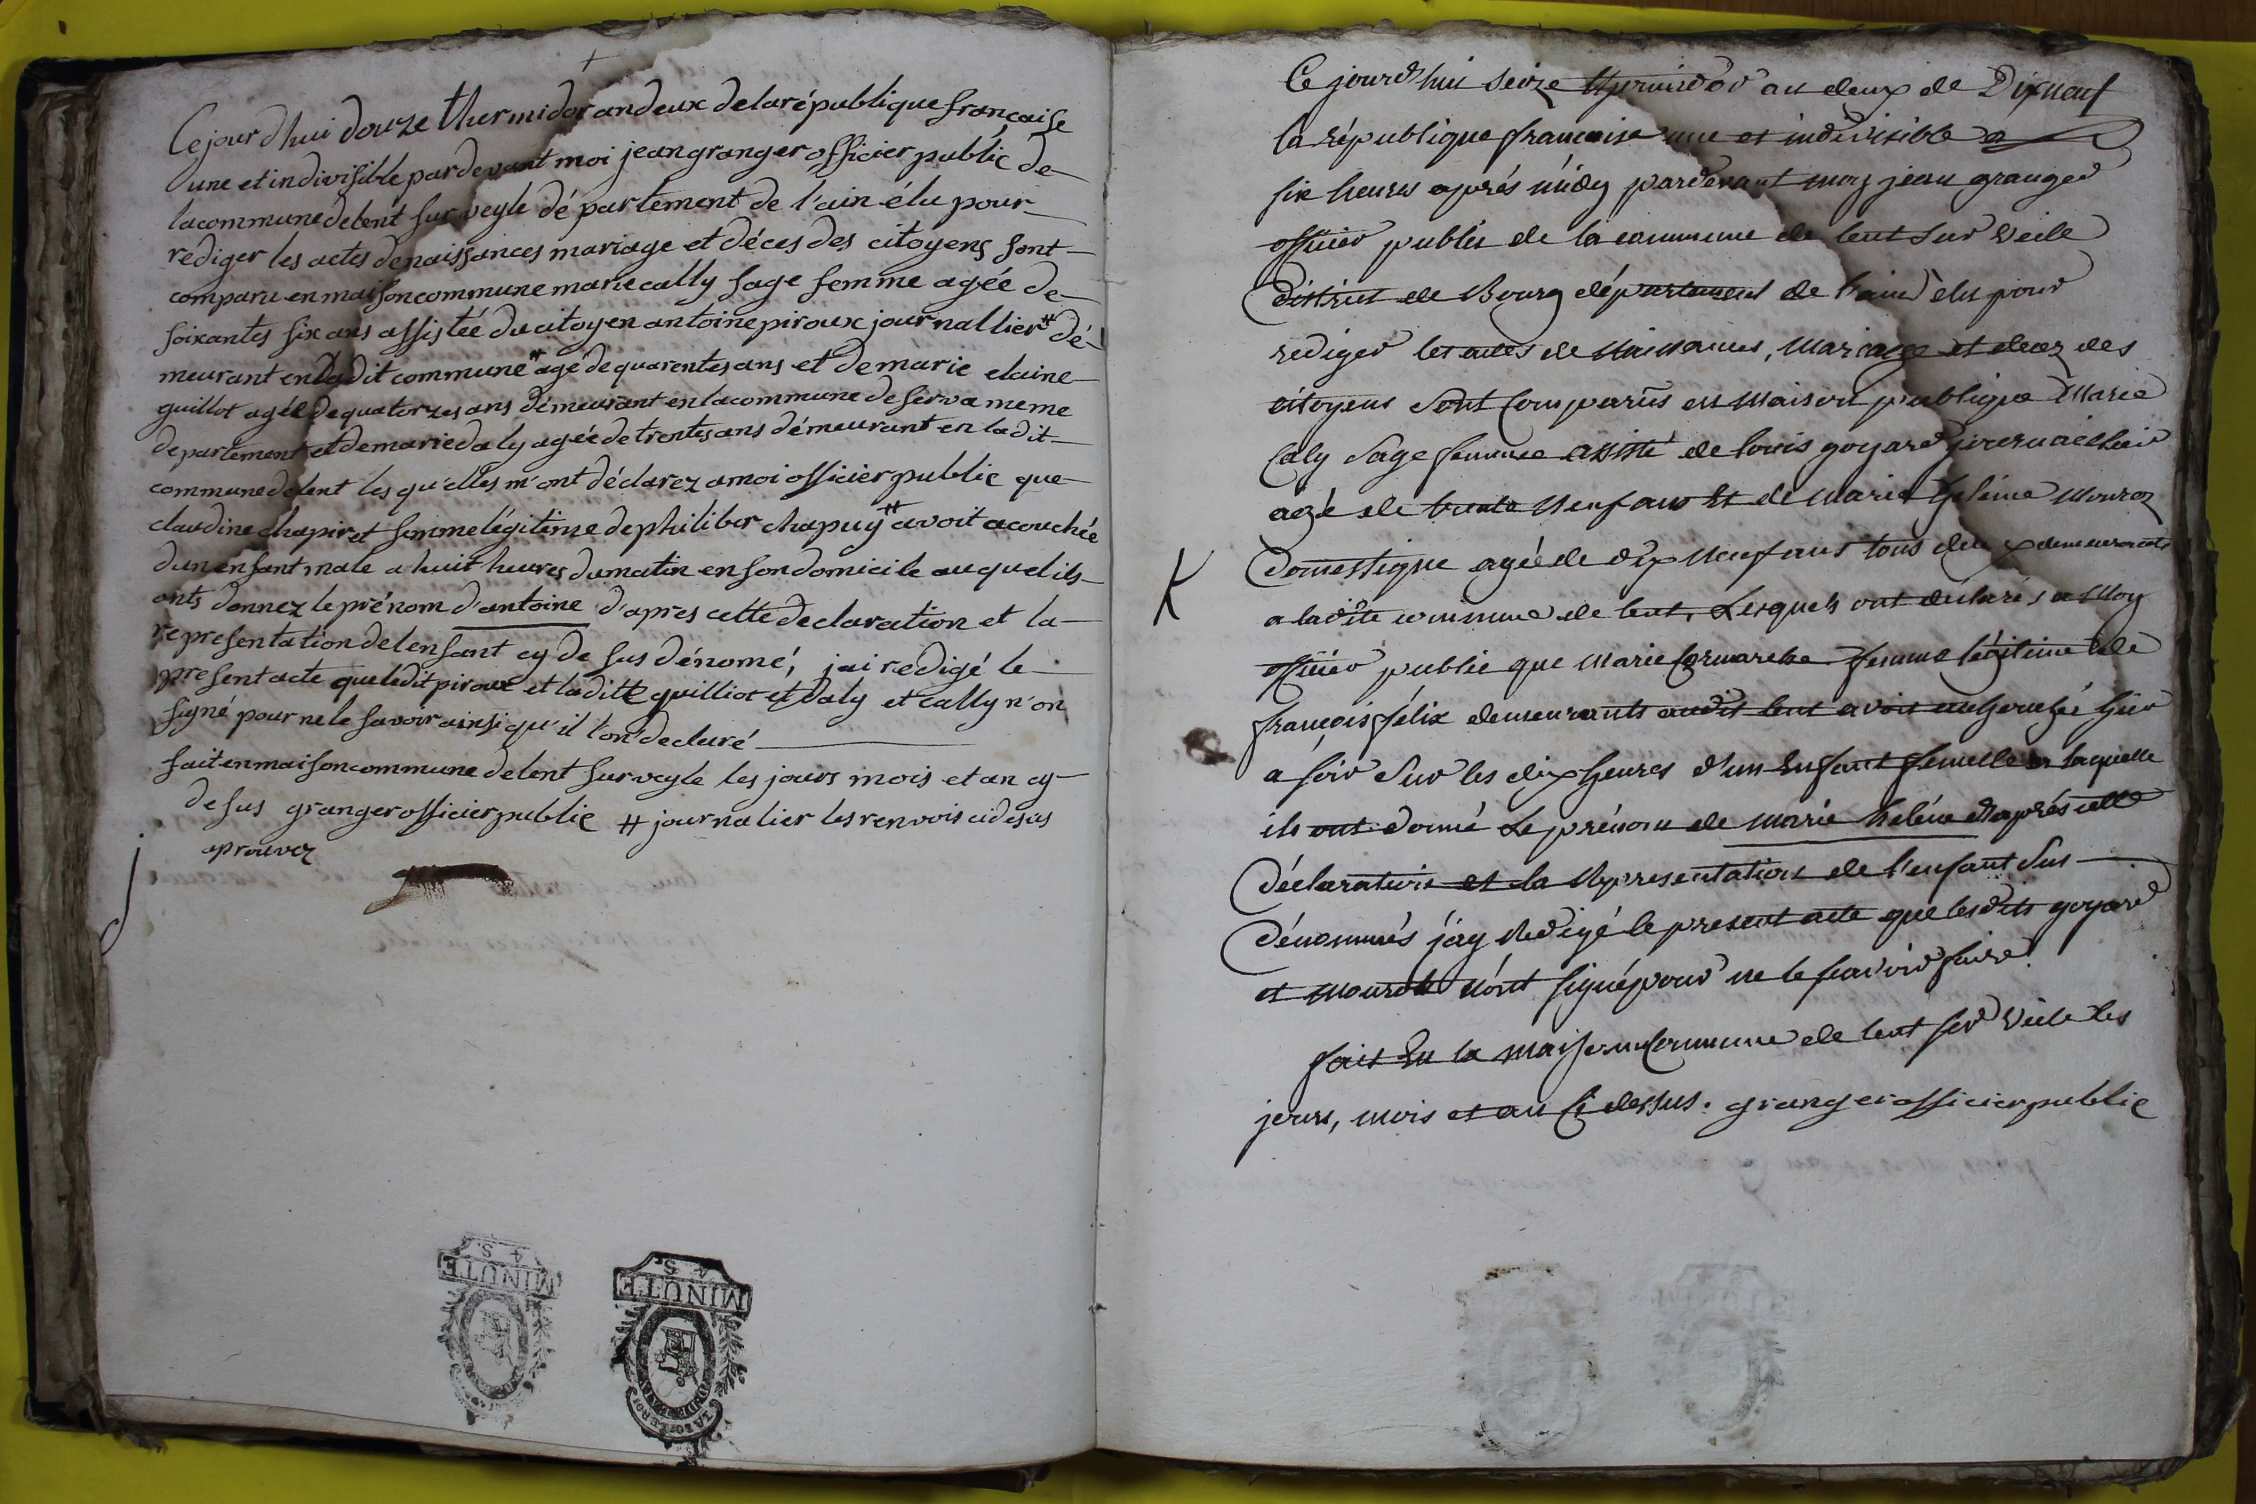 Cejourdhui douze thermidor andeux delarépublique francaise
une etindivisible pardevant moi jeangranger officier public de
lacommunedelent sur veyle département de l'ain élu pour
rediger les actes denaissances mariage et déces des citoyens sont
comparu en maison commune marie cally sage femme agée de
soixantes six ans assistée ducitoyen antoine piroux journallier # dé
meurant en ladit commune # agé de quarentes ans et de marie elaine
guillot agée dequatorzes ans démeurant en lacommune de serva meme
departement et demarie daly agée de trentes ans démeurant en ladit
commune delent les qu'elles m'ont déclarez amoi officier public que
claudine chapiret femme légitime dephiliber chapuy # avoit acouchée
dun enfant male a huit heures dumatin en son domicile auquel ils
onts donnez le prénom d'antoine d'apres cette declaration et la
representation delenfant cy de sus dénomé, jai redigé le
present acte queledit piroux et laditte guilliot et daly et cally n'on
signé pour ne le savoir ainsi qu'il l'on declaré
fait en maison commune delent sur veyle les jours mois et an cy
desus granger officier public # journalier les renvois cidesus
aprouvez
MINUTE
4 S.
MINUTE
4 S.
Ce jourd'hui seize thermidor an deux de Dixneuf
la république francaise une et indivisible a
six heures aprés midy pardevant moy jean granger
officier public de la commune de lent sur veile
district de Bourg département de l'ain elu pour
rediger les actes de naissances, mariage et decez des
citoyens sont comparus en maison publique Marie
Caly sage femme assisté de louis goyard journailier
agé de trente neuf ans et de marie heleine mouroz
Domestique agée de dix neuf ans tous deux demeurants
a ladite commune de lent, Lesquels ont déclarés a moy
officier public que marie Cormareche femme légitime de
françois félix demeurants audit lent avoit accouchée hier
a soir sur les dix heures d'un enfant femelle a laquelle
ils ont donné Le prénom de marie heléne d'aprés cette
déclaration et la représentation de l'enfant sus
dénommés j'ay redigé le present acte que lesdits goyard
et mouroz n'ont signé pour ne le scavoir faire
fait En la maison commune de lent sur veile les
jours, mois et an ci dessus. granger officier public